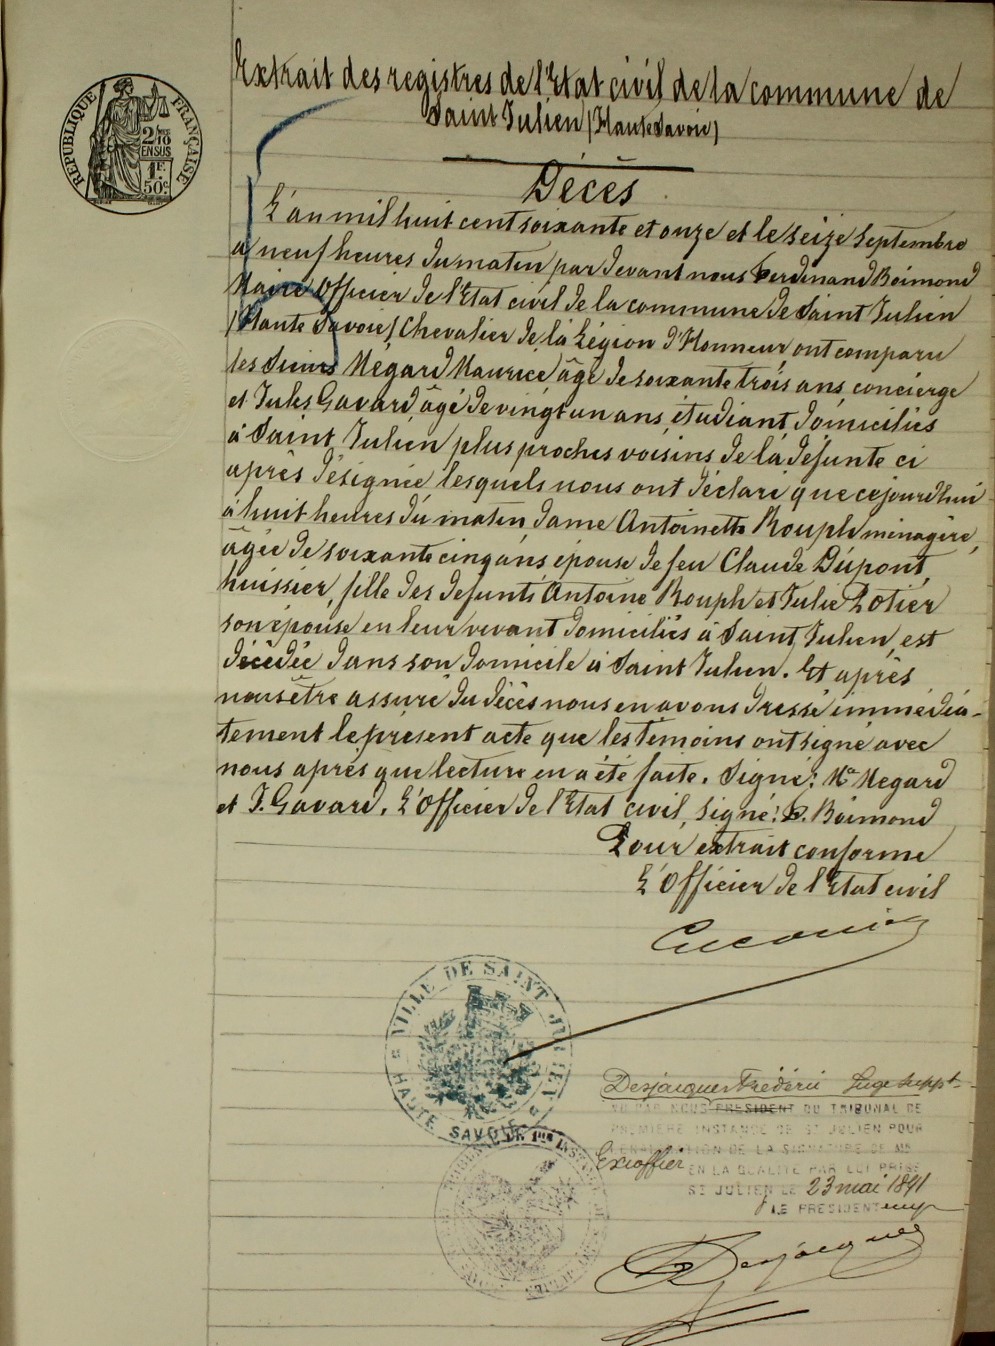 RÉPUBLIQUE FRANÇAISE
2/10 EN SUS
1F.50c.
Extrait des registres de l'Etat civil de la commune de
Saint Julien (Haute Savoie)
Décès
L'an mil huit cent soixante et onze et le seize Septembre
à neuf heures du matin par devant nous Ferdinand Boimond
Maire Officier de l'Etat civil de la commune de Saint Julien
(Haute Savoie) Chevalier de la Légion d'Honneur ont comparu
les Sieurs Mégard Maurice âgé de soixante trois ans, concierge
et Jules Gavard âgé de vingt un ans, étudiant, domiciliés
à Saint Julien plus proches voisins de la défunte ci
après désignée lesquels nous ont déclaré que cejourd'hui
à huit heures du matin dame Antoinette Rouph ménagère,
âgée de soixante cinq ans épouse de feu Claude Dupont,
huissier, fille des défunts Antoine Rouph et Julie Potier
son épouse en leur vivant domiciliés à Saint Julien, est
décédée dans son domicile à Saint Julien. Et après
nous être assuré du décès nous en avons dressé immédia-
tement le présent acte que les témoins ont signé avec
nous après que lecture en a été faite. Signé: Me Megard
et J. Gavard. L'Officier de l'Etat civil, signé: F. Boimond
Pour extrait conforme
L'Officier de l'Etat civil
VILLE DE SAINT JULIEN
HAUTE SAVOIE
Desjacques Frédéric Juge suppt
VU PAR NOUS PRESIDENT DU TRIBUNAL DE
PREMIERE INSTANCE DE ST JULIEN POUR
LEGALISATION DE LA SIGNATURE DE MR
Excoffier EN LA QUALITÉ PAR LUI PRISE
ST JULIEN LE 23 mai 1891
LE PRESIDENT emp
Desjacques